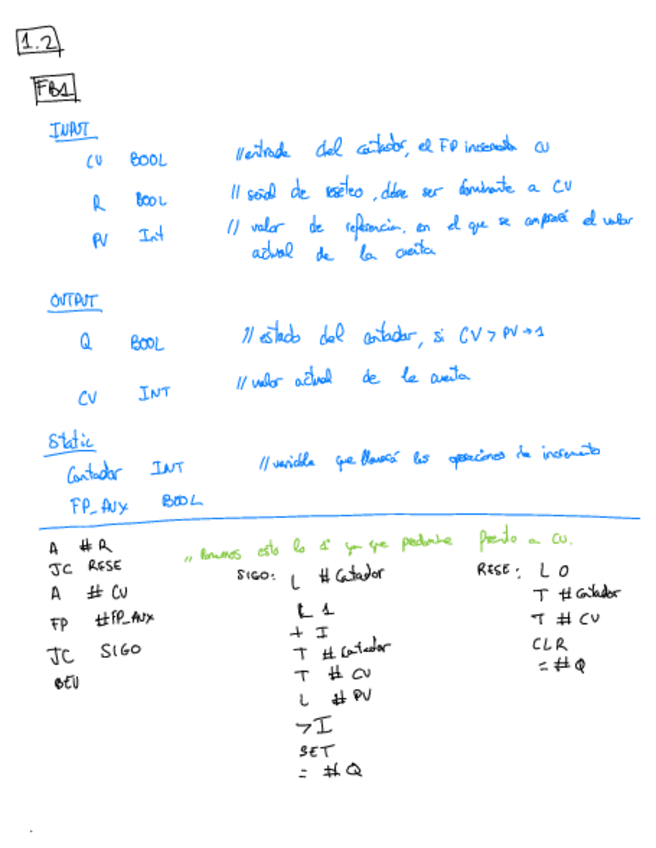 1.2
FB1
INPUT
CU BOOL //entrada del contador, el FP incrementa CU
R BOOL // señal de reseteo, debe ser dominante a CV
PV Int // valor de referencia, en el que se comparará el valor
actual de la cuenta
OUTPUT
Q BOOL // estado del contador, si CV > PV → 1
CV INT // valor actual de la cuenta
Static
Contador INT // variable que llevará las operaciones de incremento
FP_AUX BOOL
A #R
JC RESE
A # CU
FP #FP_AUX
JC SIGO
BEU
// Ponemos esto lo 1º ya que predomina frente a CU.
SIGO: L #Contador
L 1
+ I
T # Contador
T # CV
L # PV
>I
SET
= #Q
RESE: L 0
T #Contador
T # CV
CLR
= #Q